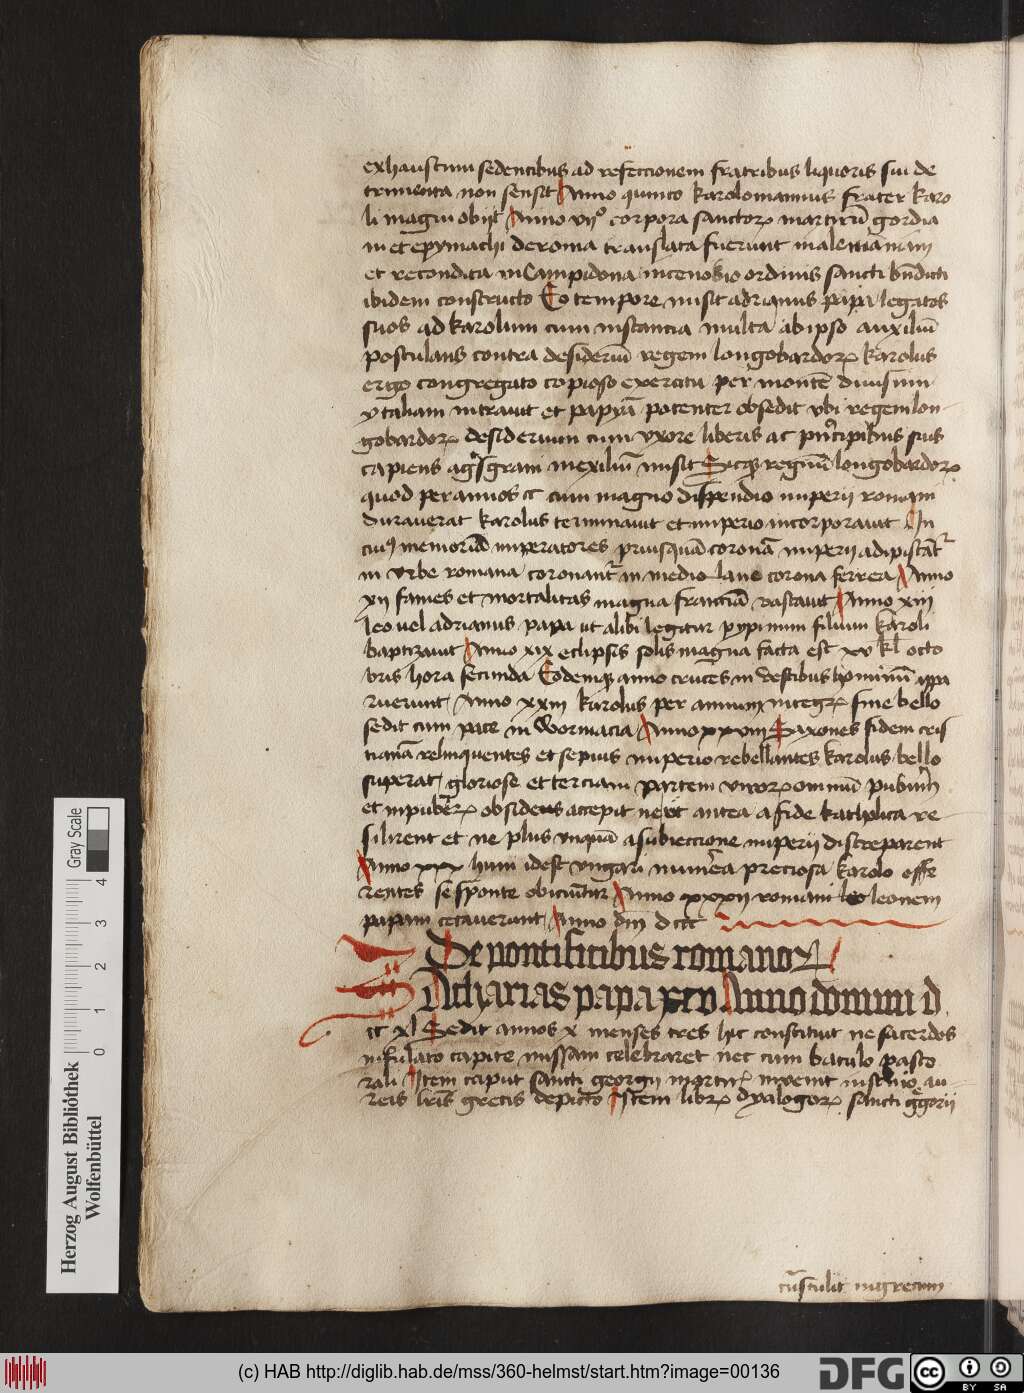 exhaustum sedentibus ad refeccionem fratribus liquoris sui de
trimenta non sensit Anno quinto karolomannus frater karo
li magni obijt Anno vijº corpora sanctorꝝ martirū gordia
ni et epymachi de roma translata fuerunt in alemāniam
et recondita in Campidona in cenobio ordinis sancti bn̄dicti
ibidem constructo Eo tempore misit adrianus papa legatos
suos ad karolum cum instancia multa ab ipso auxiliū
postulans contra desideriū regem longobardorꝝ karolus
ergo congregato copioso exercitu per montē
ytaliam intravit et papyā potenter obsedit vbi regem lon
gobardorꝝ desiderium cum vxore liberis ac pn̄cipibus suis
capiens in exiliū misit Sicqꝫ regnū longobardorꝝ
quod per annos cc cum magno dispendio imperii romani
duraverat karolus terminauit et imperio incorporauit In
cuiꝰ memoriā imperatores priusquā coronā imperij adipiscāt᷑
in vrbe romana coronant᷑ in mediolano corona ferrea Anno
xij fames et mortalitas magna franciā vastauit Anno xiij
leo uel adrianus papa ut alibi legitur pypinum filium karoli
baptizauit Anno xix eclipsis solis magna facta est xv kl̄ octo
bris hora secunda Eodemqꝫ anno cruces in vestibus hominū appa
ruerunt Anno xxiij karolus per annum integrꝝ sine bello
sedit cum pace in Wormacia Anno xxviij Saxones fidem cris
tianā relinquentes et sepius imperio rebellantes karolus bello
superat gloriose et terciam partem virorꝝ omniū pubrum
et inpuberꝝ obsides accepit ne vt antea a fide katholica re
silirent et ne plus vnquā a subieccione imperij discreparent
Anno xxx huni idest vngari munera preciosa karolo offe
rentes se sponte obiciūtur Anno xxxij romani leonem
papam cecauerunt Anno dnī dccc
De pontificibus romanorꝝ
Zacharias papa xcv Anno domini d
cc xl Sedit annos x menses tres hic constituit ne sacerdos
infulato capite missam celebraret nec cum baculo pasto
rali Item caput sancti georgij martirꝝ invenit in scrinio au
reis lr̄is grecis depicto Item librꝝ dyalogorꝝ sancti gregorii
trāstulit in grecum
Herzog August Bibliothek
Wolfenbüttel
Gray Scale
0 1 2 3 4
(c) HAB http://diglib.hab.de/mss/360-helmst/start.htm?image=00136
DFG
cc BY SA